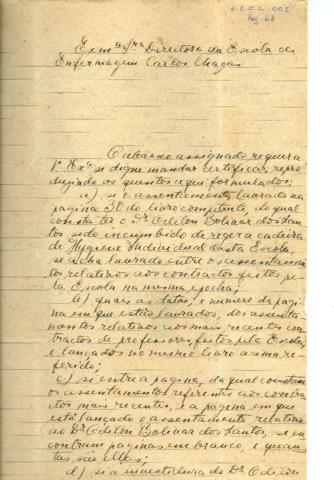 A.E.E.C. 005
Pag. 68
Exma. Snra. Directora da Escola de
Enfermagem Carlos Chagas
O abaixo assignado requer a
V. Exa. se digne mandar certificar, repro
duzindo os quesitos aqui formulados:
a) si o assentamento, lavrado na
pagina 30 do livro competente, do qual
consta ter o Dr. Odilon Bolivar dos San
tos sido incumbido de reger a cadeira
de Hygiene Individual desta Escola,
se acha lavrado entre os assentamen
tos relativos aos contractos feitos pe
la Escola na mesma epocha;
b) quaes as datas, e numero da pagi
na em que estão lavrados, dos assenta
mentos relativos aos mais recentes con
tractos de professores, feitos pela Escola,
e lançados no mesmo livro acima re-
ferido;
c) si entre a pagina, da qual constem
os assentamentos referentes aos contra
ctos mais recentes, e a pagina em que
está lançado o assentamento relativo
ao Dr. Odilon Bolivar dos Santos, se en
contram paginas em branco, e quan
tas são ellas;
d) si a investidura do Dr. Odilon